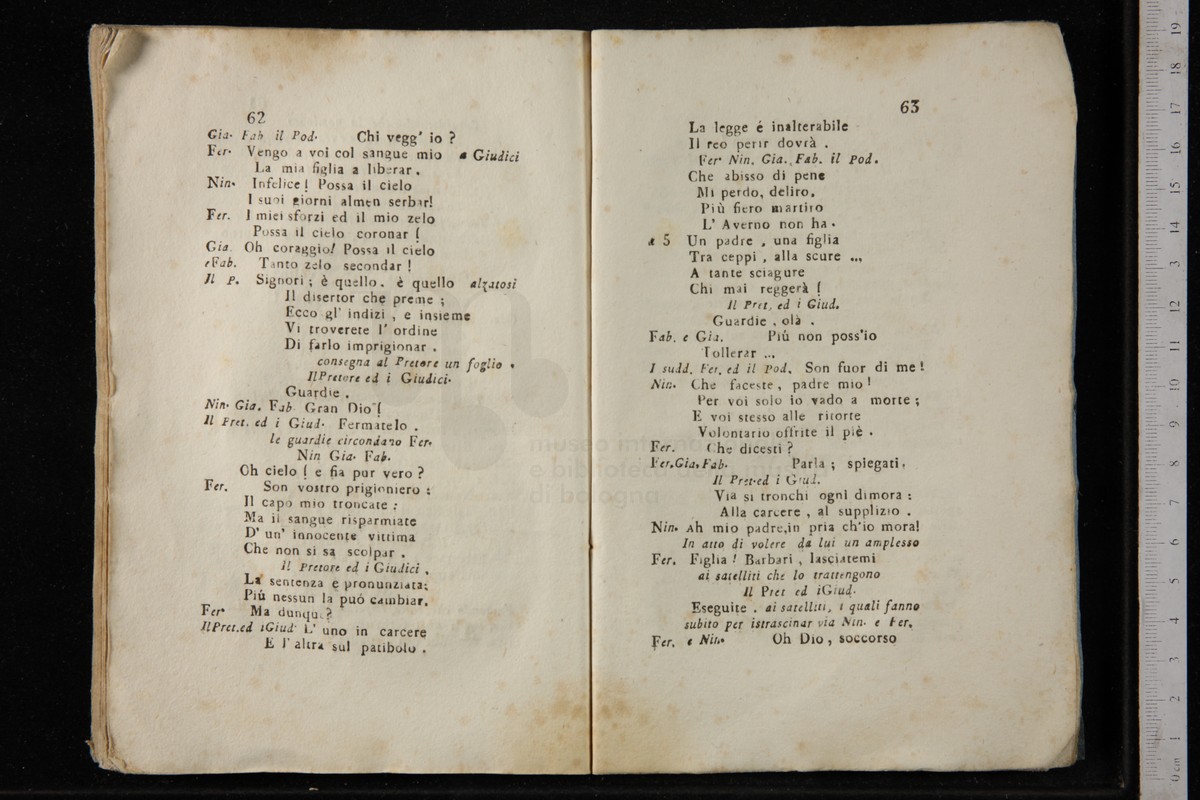 62
Gia. Fab il Pod. Chi vegg' io ?
Fer. Vengo a voi col sangue mio a Giudici
La mia figlia a liberar.
Nin. Infelice! Possa il cielo
I suoi giorni almen serbar!
Fer. I miei sforzi ed il mio zelo
Possa il cielo coronar !
Gia. Oh coraggio! Possa il cielo
e Fab. Tanto zelo secondar !
Il P. Signori ; è quello. è quello alzatosi
Il disertor che preme ;
Ecco gl' indizi , e insieme
Vi troverete l' ordine
Di farlo imprigionar .
consegna al Pretore un foglio .
Il Pretore ed i Giudici.
Guardie .
Nin. Gia. Fab. Gran Dio !
Il Pret. ed i Giud. Fermatelo .
le guardie circondano Fer.
Nin Gia. Fab.
Oh cielo ! e fia pur vero ?
Fer. Son vostro prigioniero :
Il capo mio troncate :
Ma il sangue risparmiate
D' un' innocente vittima
Che non si sa scolpar .
Il Pretore ed i Giudici .
La sentenza e pronunziata;
Più nessun la puó cambiar.
Fer. Ma dunque?
Il Pret.ed i Giud. L' uno in carcere
E l' altra sul patibolo .
63
La legge é inalterabile
Il reo perir dovrà .
Fer. Nin. Gia. Fab. il Pod.
Che abisso di pene
Mi perdo, deliro.
Più fiero martiro
L' Averno non ha .
a 5 Un padre , una figlia
Tra ceppi , alla scure ...
A tante sciagure
Chi mai reggerà !
Il Pret. ed i Giud.
Guardie . olà .
Fab. e Gia. Piú non poss'io
Tollerar ...
I sudd. Fer. ed il Pod. Son fuor di me !
Nin. Che faceste, padre mio !
Per voi solo io vado a morte ;
E voi stesso alle ritorte
Volontario offrite il piè .
Fer. Che dicesti ?
Fer.Gia.Fab. Parla ; spiegati.
Il Pret.ed i Giud.
Via si tronchi ogni dimora :
Alla carcere , al supplizio .
Nin. Ah mio padre,in pria ch'io mora!
In atto di volere da lui un amplesso
Fer. Figlia ! Barbari , lasciatemi
ai satelliti che lo trattengono
Il Pret ed i Giud.
Eseguite . ai satelliti, i quali fanno
subito per istrascinar via Nin. e Fer.
Fer. e Nin. Oh Dio , soccorso